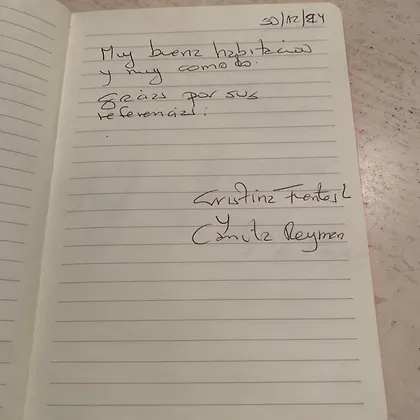 30/12/24
Muy buena habitacion
y muy comodo.
Grcias por sus
referencias.
Cristina Fuentes L
y
Camila Reyman